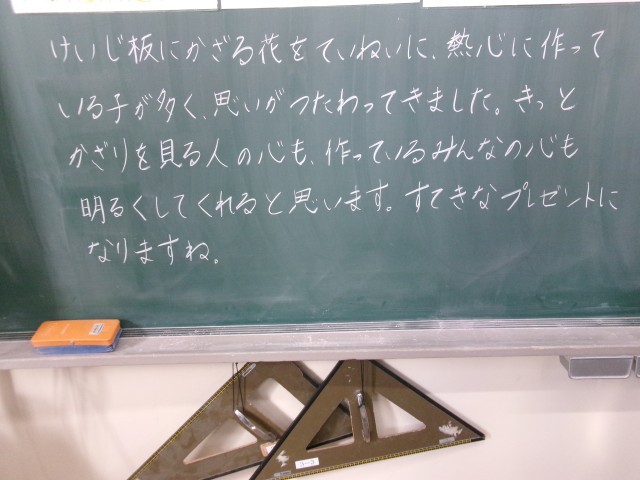 けいじ板にかざる花をていねいに、熱心に作って
いる子が多く、思いがつたわってきました。きっと
かざりを見る人の心も、作っているみんなの心も
明るくしてくれると思います。すてきなプレゼントに
なりますね。